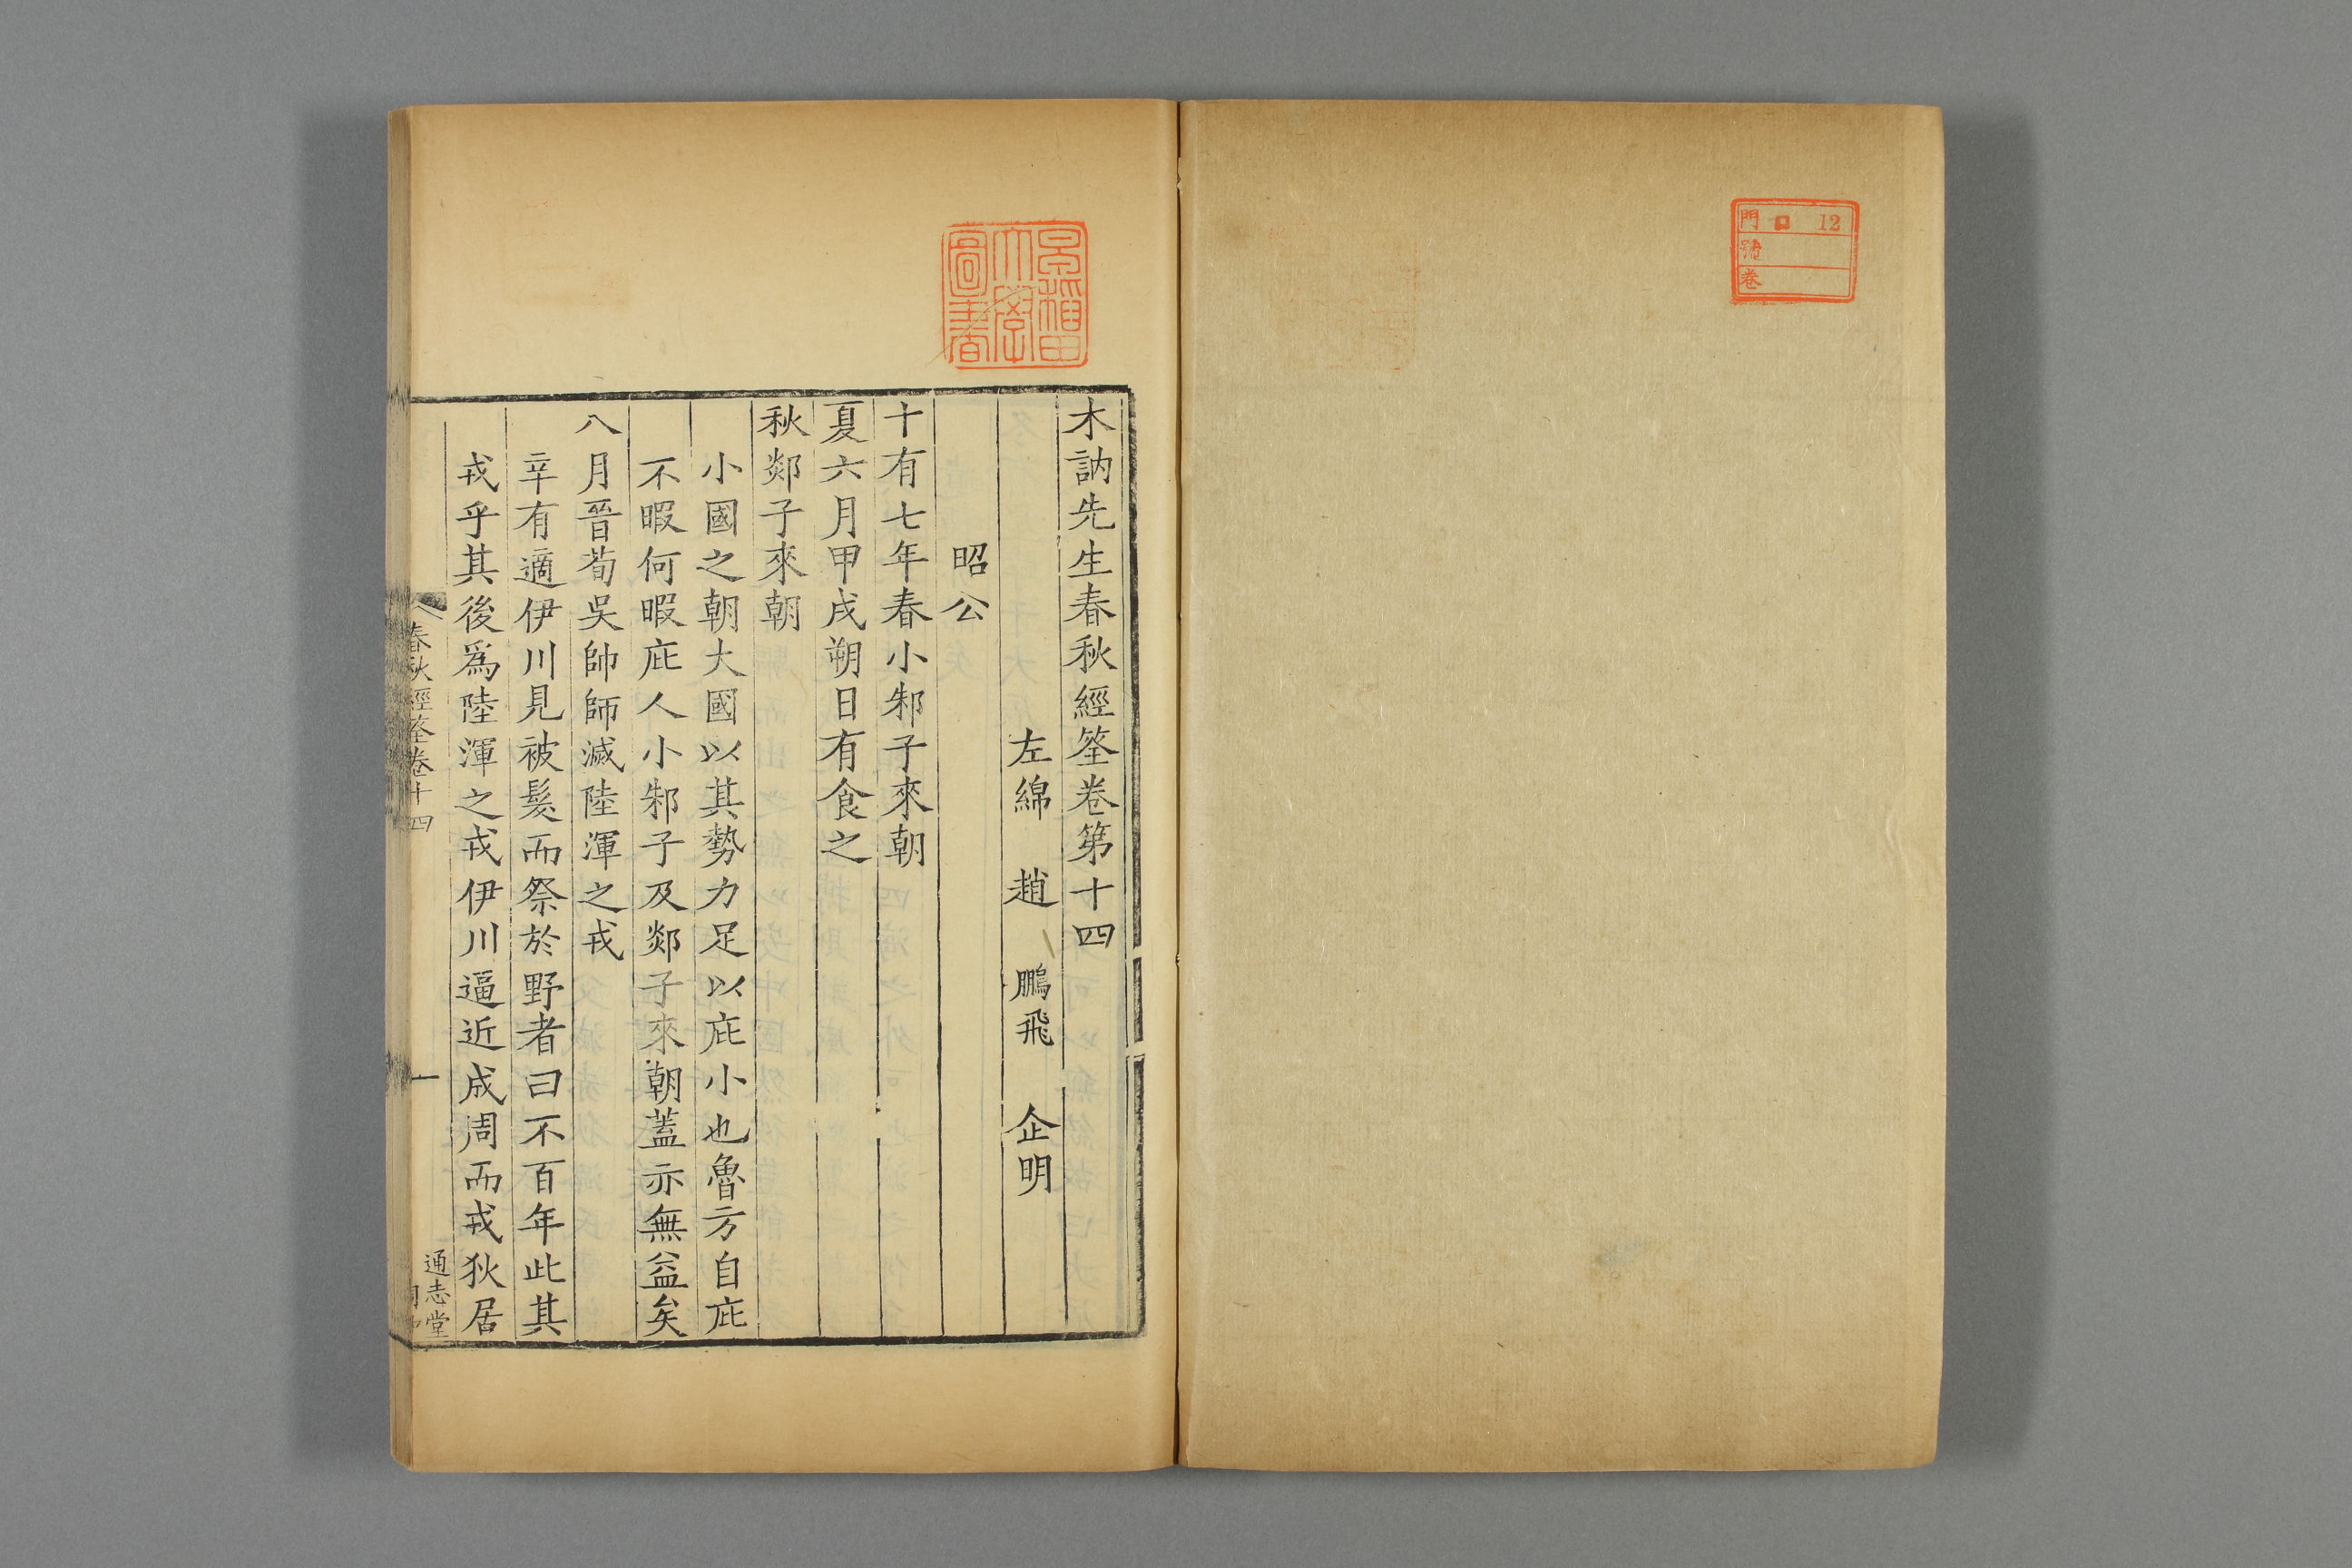 門 ロ 12
號
卷
早稲田
大學
圖書
木訥先生春秋經筌卷第十四
左綿 趙 鵬飛 企明
昭公
十有七年春小邾子來朝
夏六月甲戌朔日有食之
秋郯子來朝
小國之朝大國以其勢力足以庇小也魯方自庇
不暇何暇庇人小邾子及郯子來朝蓋亦無益矣
八月晉荀吳帥師滅陸渾之戎
辛有適伊川見被髮而祭於野者曰不百年此其
戎乎其後爲陸渾之戎伊川逼近成周而戎狄居
春秋經筌卷十四
一
通志堂